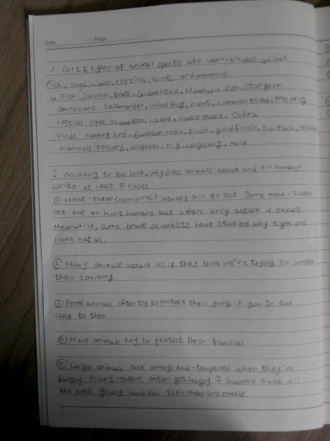 Date Page
1. Sort 5 types of animal species into vertebrated animal
Fish, amphibians, reptiles, birds, and mammals
Fish: Salmon, bass, fish, Sturgeon
Amphibians: Salamander, wood frog, newt, common toad, tree frog
reptiles: viper, chameleon, lizard, rattle snake, Cobra
birds: humming bird, European robin, Finch, goldfinch,
mammals: wildebeest, pig,
2. According to the book, why does animals attack and kill humans?
Write at least 5 cases
① Meat-eater (carnivores) usually kill to eat. Some meat-eaters
see out to hunt humans but others only attack if
Meanwhile, some brave scientists have studied why tigers and
lions eat us.
② Many animals attack us if they think we're trying to invade
their territory
③ animals often try to protect their young if you go too
close to them
④ Male animals try to protect their families
⑤ Large animals are always bad-tempered when they're
hungry. Plant-eaters often get hungry if humans have all
the best land for their own